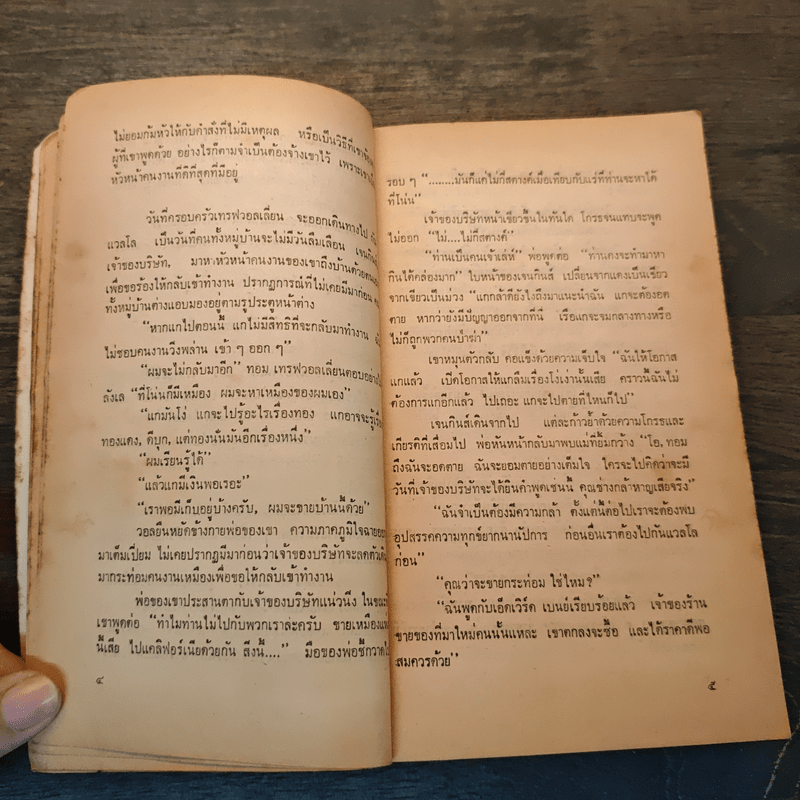 ไม่ยอมก้มหัวให้กับคำสั่งที่ไม่มีเหตุผล หรือเป็นวิธีที่เขา
ผู้ที่เขาพูดด้วย อย่างไรก็ตามจำเป็นต้องจ้างเขาไว้ เพราะเขา
หัวหน้าคนงานที่ดีที่สุดที่มีอยู่
วันที่ครอบครัวเทรฟวอลเลี่ยน จะออกเดินทางไป
แวลโล เป็นวันที่คนทั้งหมู่บ้านจะไม่มีวันลืมเลือน เจนกินส์
เจ้าของบริษัท, มาหาหัวหน้าคนงานของเขาถึงบ้านด้วยตนเอง
เพื่อขอร้องให้กลับเข้าทำงาน ปรากฏการณ์ที่ไม่เคยมีมาก่อน
ทั้งหมู่บ้านต่างแอบมองอยู่ตามรูประตูหน้าต่าง
“หากแกไปตอนนี้ แกไม่มีสิทธิที่จะกลับมาทำงาน
ไม่ชอบคนงานวิ่งพล่าน เข้า ๆ ออก ๆ”
“ผมจะไม่กลับมาอีก” ทอม เทรฟวอลเลี่ยนตอบอย่าง
ลังเล “ที่โน่นก็มีเหมือง ผมจะหาเหมืองของผมเอง”
“แกมันโง่ แกจะไปรู้อะไรเรื่องทอง แกอาจจะรู้เรื่อง
ทองแดง, ดีบุก, แต่ทองนั่นมันอีกเรื่องหนึ่ง”
“ผมเรียนรู้ได้”
“แล้วแกมีเงินพอเรอะ”
“เราพอมีเก็บอยู่บ้างครับ, ผมจะขายบ้านนี้ด้วย”
วอลยืนหยัดข้างกายพ่อของเขา ความภาคภูมิใจฉายออก
มาเต็มเปี่ยม ไม่เคยปรากฏมีมาก่อนว่าเจ้าของบริษัทจะลดตัว
มากระท่อมคนงานเหมืองเพื่อขอให้กลับเข้าทำงาน
พ่อของเขาประสานตากับเจ้าของบริษัทแน่วนิ่ง ในขณะ
เขาพูดต่อ “ทำไมท่านไม่ไปกับพวกเราล่ะครับ ขายเหมือง
นี้เสีย ไปแคลิฟอร์เนียด้วยกัน สิ่งนี้....” มือของพ่อชี้กวาด
๔
รอบ ๆ “........มันก็แค่ไม่กี่สตางค์เมื่อเทียบกับแร่ที่ท่านจะหาได้
ที่โน่น”
เจ้าของบริษัทหน้าเขียวขึ้นในทันใด โกรธจนแทบจะพูด
ไม่ออก “ไม่....ไม่กี่สตางค์”
“ท่านเป็นคนเจ้าเล่ห์” พ่อพูดต่อ “ท่านคงจะทำมาหา
กินได้คล่องมาก” ใบหน้าของเจนกินส์ เปลี่ยนจากแดงเป็นเขียว
จากเขียวเป็นม่วง “แกกล้าดียังไงถึงมาแนะนำฉัน แกจะต้องอด
ตาย หากว่ายังมีปัญญาออกจากที่นี่ เรือแกจะจมกลางทางหรือ
ไม่ก็ถูกพวกคนป่าฆ่า”
เขาหมุนตัวกลับ คอแข็งด้วยความเจ็บใจ “ฉันให้โอกาส
แกแล้ว เปิดโอกาสให้แกลืมเรื่องโง่เง่านั้นเสีย คราวนี้ฉันไม่
ต้องการแกอีกแล้ว ไปเถอะ แกจะไปตายที่ไหนก็ไป”
เจนกินส์เดินจากไป แต่ละก้าวย้ำด้วยความโกรธและ
เกียรติที่เสื่อมไป พ่อหันหน้ากลับมาพบแม่ที่ยิ้มกว้าง “โอ, ทอม
ถึงฉันจะอดตาย ฉันจะยอมตายอย่างเต็มใจ ใครจะไปคิดว่าจะมี
วันที่เจ้าของบริษัทจะได้ยินคำพูดเช่นนี้ คุณช่างกล้าหาญเสียจริง”
“ฉันจำเป็นต้องมีความกล้า ตั้งแต่นี้ต่อไปเราจะต้องพบ
อุปสรรคความทุกข์ยากนานัปการ ก่อนอื่นเราต้องไปกันแวลโล
ก่อน”
“คุณว่าจะขายกระท่อม ใช่ไหม?”
“ฉันพูดกับเอ็ดเวิร์ด เบนย์เรียบร้อยแล้ว เจ้าของร้าน
ขายของที่มาใหม่คนนั้นแหละ เขาตกลงจะซื้อ และได้ราคาดีพอ
สมควรด้วย”
๕